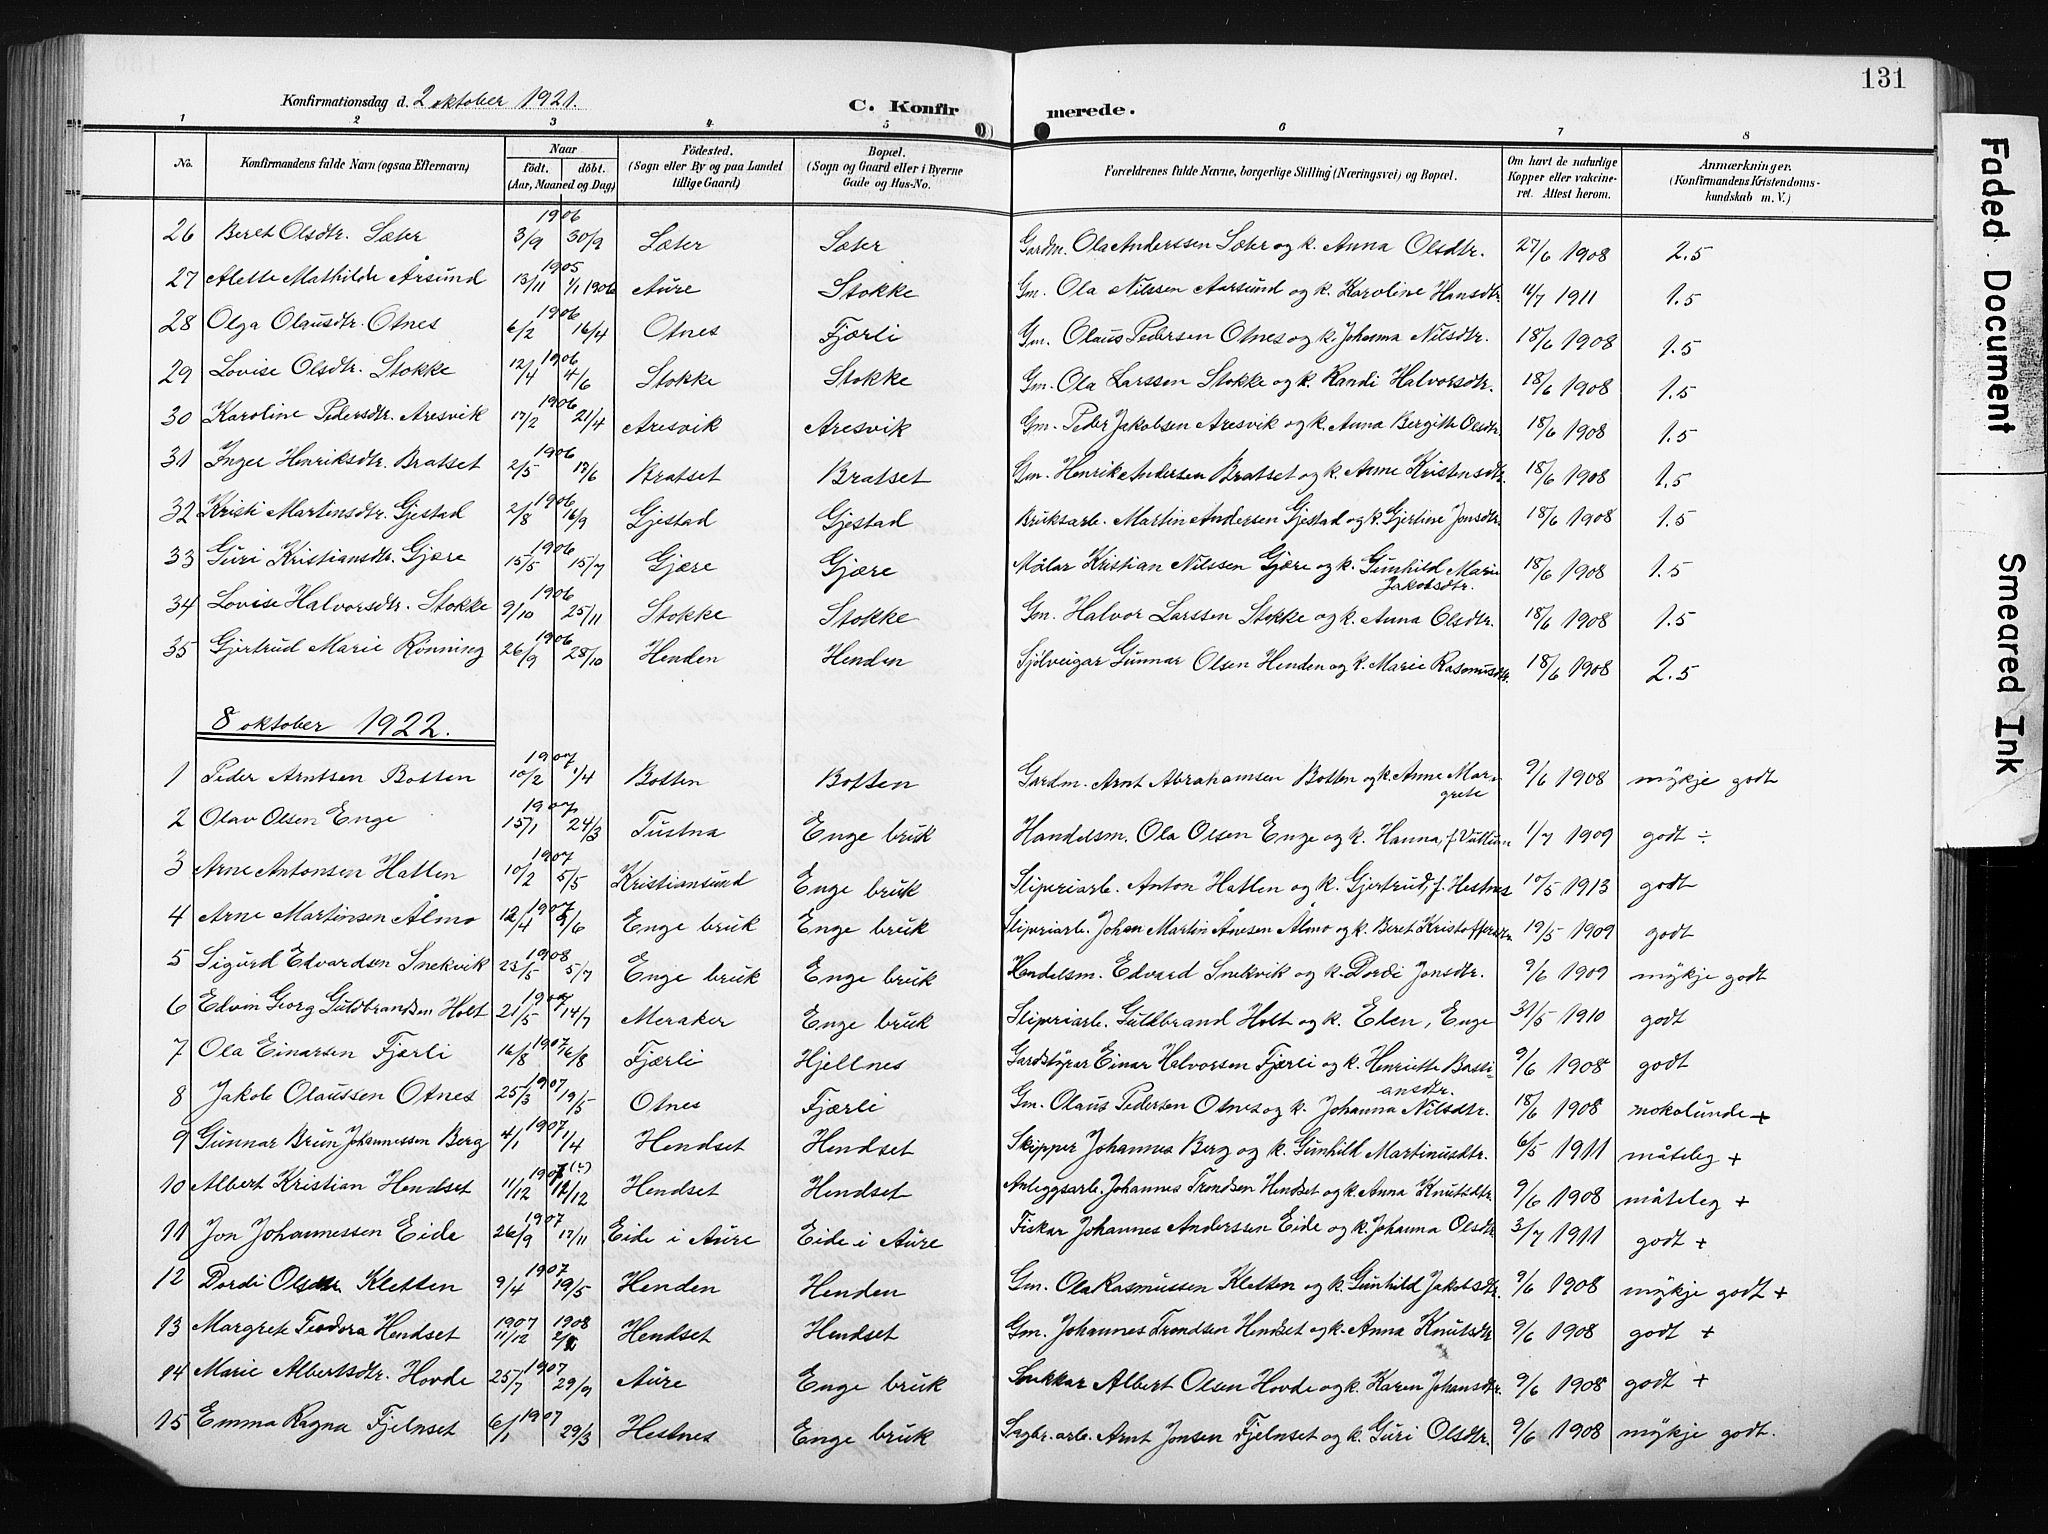 131
Konfirmationsdag d. 2 oktober 1921. C. Konfirmerede.
1 2 3 4 5 6 7 8
No. Konfirmandens fulde Navn (ogsaa Efternavn) Naar født. døbt. (Aar, Maaned og Dag) Fødested. (Sogn eller By og paa Landet tillige Gaard) Bopæl. (Sogn og Gaard eller i Byerne Gade og Hus-No. Forældrenes fulde Navne, borgerlige Stilling (Næringsvei) og Bopæl. Om havt de naturlige Kopper eller vakcineret. Attest herom. Anmærkninger. (Konfirmandens Kristendomskundskab m. V.)
26 Beret Olsdtr. Sæter 1906 3/9 30/9 Sæter Sæter Gardm. Ola Anderssen Sæter og k. Anna Olsdtr. 27/6 1908 2.5
27 Alette Mathilde Årsund 1905 13/11 1/1 1906 Aure Stokke Gm. Ola Nilssen Aarsund og k. Karoline Hansdtr. 4/7 1911 1.5
28 Olga Olausdtr. Otnes 1906 6/2 16/4 Otnes Fjærli Gm. Olaus Pedersen Otnes og k. Johanna Nilsdtr. 18/6 1908 1.5
29 Lovise Olsdtr. Stokke 1906 12/4 4/6 Stokke Stokke Gm. Ola Larssen Stokke og k. Randi Halvorsdtr. 18/6 1908 1.5
30 Karoline Pedersdtr. Aresvik 1906 17/2 21/4 Aresvik Aresvik Gm. Peder Jakobsen Aresvik og k. Anna Bergitte Olsdtr. 18/6 1908 1.5
31 Inger Henriksdtr. Bratset 1906 2/5 17/6 Bratset Bratset Gm. Henrik Andersen Bratset og k. Anne Kristensdtr. 18/6 1908 1.5
32 Kristi Martinsdtr. Gjestad 1906 2/8 16/9 Gjestad Gjestad Bruksarb. Martin Andersen Gjestad og k. Gjertine Jonsdtr. 18/6 1908 1.5
33 Guri Kristiansdtr. Gjære 1906 15/5 15/7 Gjære Gjære Målar Kristian Nilssen Gjære og k. Gunhild Marie Jakobsdtr. 18/6 1908 1.5
34 Lovise Halvorsdtr. Stokke 1906 9/10 25/11 Stokke Stokke Gm. Halvor Larssen Stokke og k. Anna Olsdtr. 18/6 1908 1.5
35 Gjertrud Marie Rönning 1906 26/9 28/10 Henden Henden Sjölveigar Gunnar Olsen Henden og k. Marie Rasmusdtr. 18/6 1908 2.5
8 oktober 1922.
1 Peder Arntsen Botten 1907 10/2 1/4 Botten Botten Gardm. Arnt Abrahamsen Botten og k. Anne Margrete 9/6 1908 mykje godt
2 Olav Olsen Enge 1907 15/1 24/3 Tustna Enge bruk Handelsm. Ola Olsen Enge og k. Hanna, f. 1/7 1909 godt ÷
3 Arne Antonsen Hatlen 1907 10/2 5/5 Kristiansund Enge bruk Sliperiarb. Anton Hatlen og k. Gjertrud, f. Hestnes 10/5 1913 godt
4 Arne Martinsen Ålmo 1907 12/4 /6 Enge bruk Enge bruk Sliperiarb. Johan Martin Ånesen Ålmo og k. Beret Kristoffersdtr. 19/5 1909 godt
5 Sigurd Edvardsen Snekvik 1908 23/5 5/7 Enge bruk Enge bruk Handelsm. Edvard Snekvik og k. Dordi Jonsdtr. 9/6 1909 mykje godt
6 Edvin Georg Guldbrandsen Holt 1907 21/5 14/7 Meraker Enge bruk Sliperiarb. Guldbrand Holt og k. Elen, Enge 31/5 1910 godt
7 Ola Einarsen Fjærli 1907 16/8 Fjærli Hjellnes Gardstyrar Einar Halvorsen Fjærli og k. Henriette Bastiansdtr. 9/6 1908 godt
8 Jakob Olaussen Otnes 1907 25/3 19/5 Otnes Fjærli Gm. Olaus Pedersen Otnes og k. Johanna Nilsdtr. 18/6 1908 nokolunde +
9 Gunnar Brun Johannessen Berg 1907 4/1 1/4 Hendset Hendset Skipper Johannes Berg og k. Gunhild Martinusdtr. 6/5 1911 måteleg +
10 Albert Kristian Hendset 1907 11/12 12/12 Hendset Hendset Anleggsarb. Johannes Trondsen Hendset og k. Anna Knutsdtr. 9/6 1908 måteleg +
11 Jon Johannessen Eide 1907 26/9 17/11 Eide i Aure Eide i Aure Fiskar Johannes Anderssen Eide og k. Johanna Olsdtr. 3/7 1911 godt +
12 Dordi Olsdtr. Kletten 1907 9/4 19/5 Henden Henden Gm. Ola Rasmussen Kletten og k. Gunhild Jakobsdtr. 9/6 1908 mykje godt +
13 Margrete Teodora Hendset 1907 11/12 1908 Hendset Hendset Gm. Johannes Trondsen Hendset og k. Anna Knutsdtr. 9/6 1908 godt +
14 Marie Albertsdtr. Hovde 1907 25/7 29/9 Aure Enge bruk Snikkar Albert Olsen Hovde og k. Karen Johansdtr. 9/6 1908 godt +
15 Emma Ragna Fjelnset 1907 6/1 29/3 Hestnes Enge bruk Sagbr.arb. Arnt Jonsen Fjelnset og k. Guri Olsdtr. 9/6 1908 mykje godt.
Faded Document
Smeared Ink